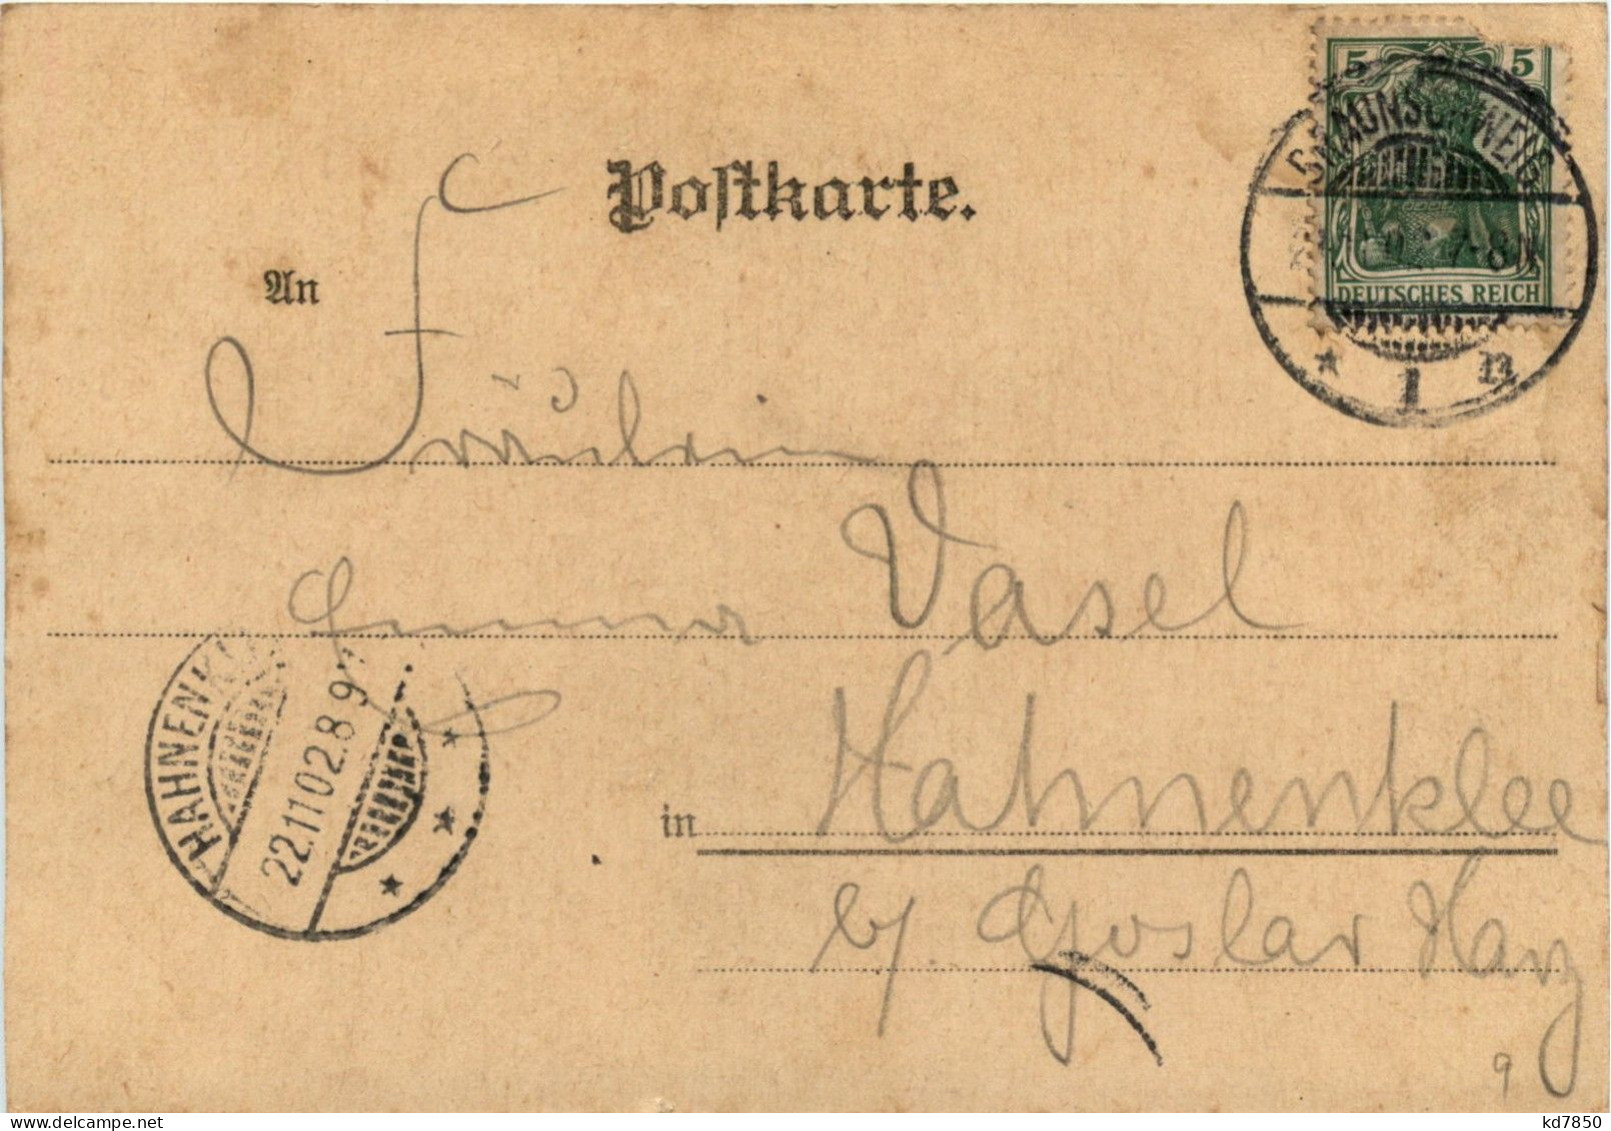 Postkarte.
5 5
BRAUNSCHWEIG
7-8N
DEUTSCHES REICH
* 1 n
An
Fräulein
Emma Vasel
HAHNENKL
22.11.02.8 9
in Hahnenklee
b/ Goslar Harz
9
kd7850